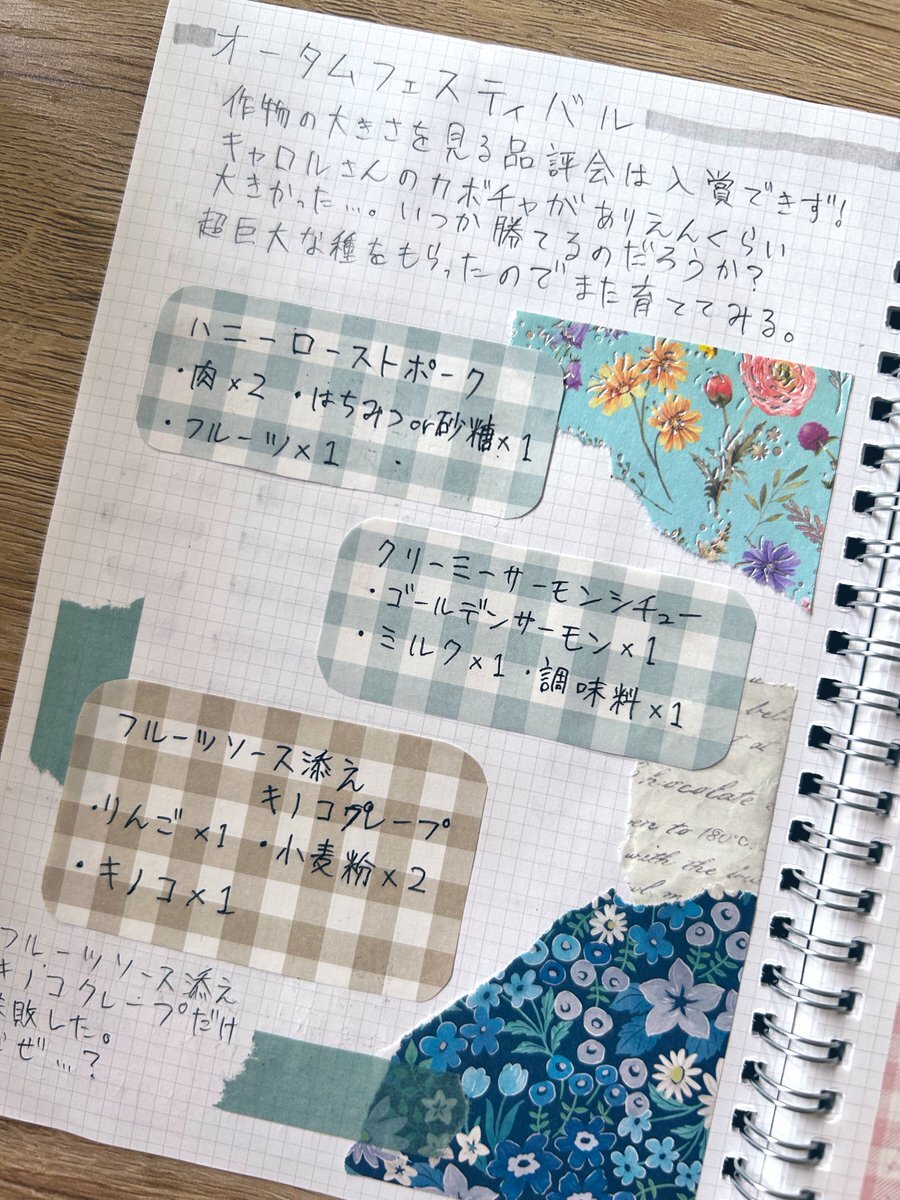 オータムフェスティバル
作物の大きさを見る品評会は入賞できず!
キャロルさんのカボチャがありえんくらい
大きかった…。いつか勝てるのだろうか?
超巨大な種をもらったのでまた育ててみる。
ハニーローストポーク
・肉×2 ・はちみつor砂糖×1
・フルーツ×1 ・
クリーミーサーモンシチュー
・ゴールデンサーモン×1
・ミルク×1 ・調味料×1
chocolate
to 180°c,
with the
フルーツソース添え
キノコクレープ
・りんご×1 ・小麦粉×2
・キノコ×1
フルーツソース添え
キノコクレープだけ
失敗した。
なぜ…?